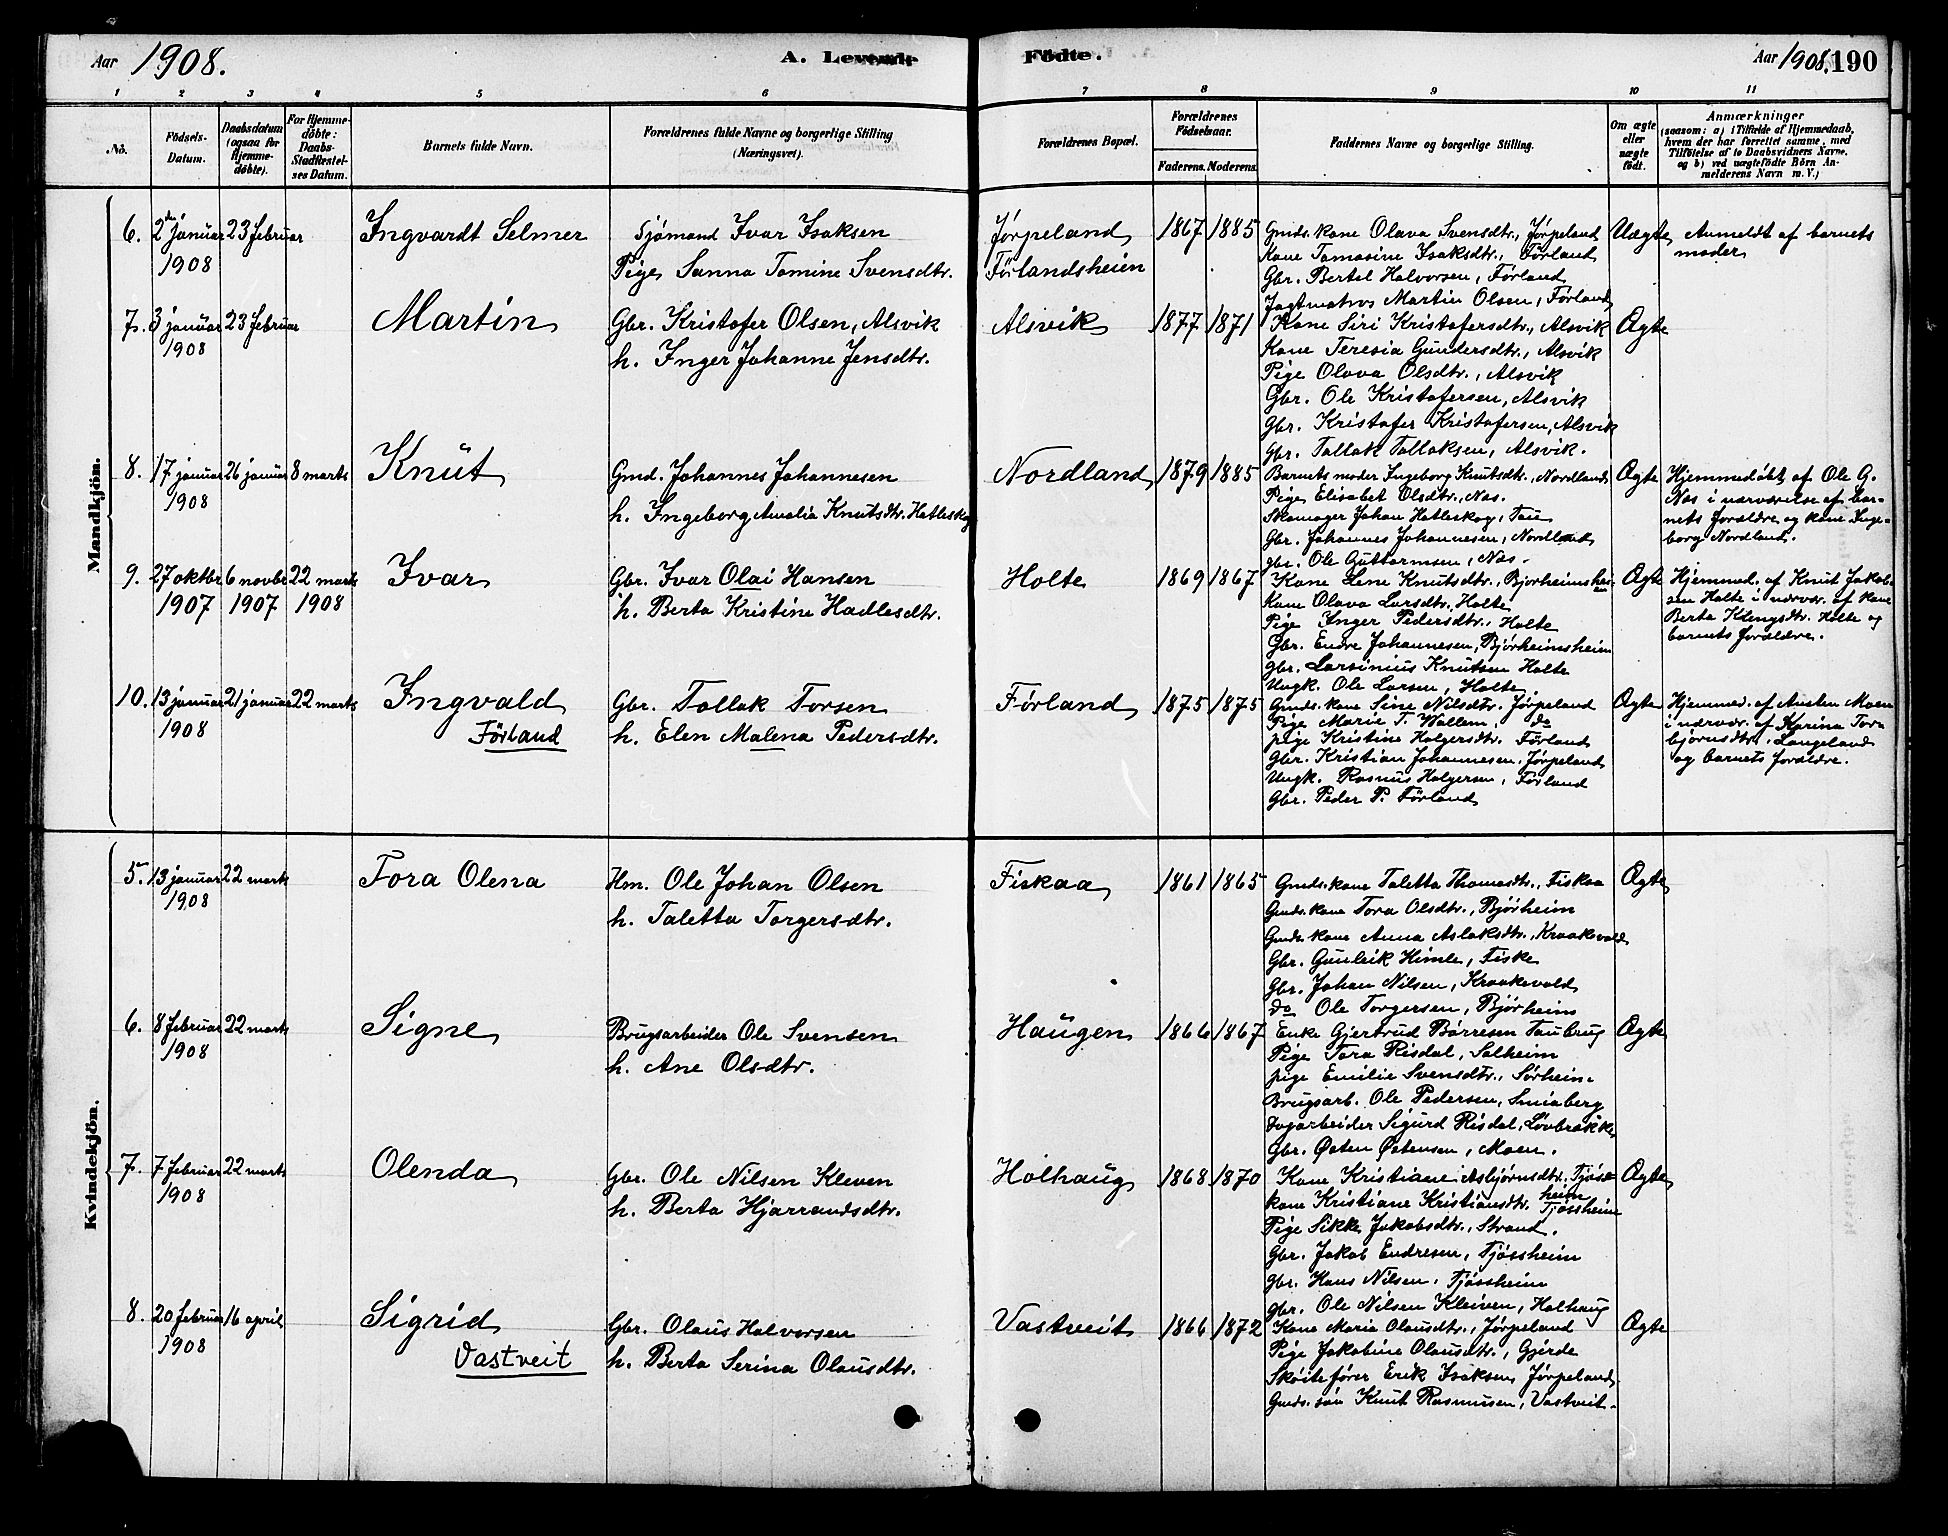 Aar 1908.
A. Levende
Födte.
Aar 1908. 190
1 2 3 4 5 6 7 8 9 10 11
No.
Födsels-Datum.
Daabsdatum (ogsaa for Hjemme-döbte).
For Hjemme-döbte: Daabs-Stadfæstel-ses Datum.
Barnets fulde Navn.
Forældrenes fulde Navne og borgerlige Stilling (Næringsvei).
Forældrenes Bopæl.
Forældrenes Födselsaar.
Faderens. Moderens.
Faddernes Navne og borgerlige Stilling.
Om ægte eller uægte födt.
Anmærkninger (saasom: a) i Tilfælde af Hjemmedaab, hvem der har forrettet samme, med Tilföielse af to Daabsvidners Navne, og b) ved uægtefödte Börn An-melderens Navn m. V.)
Mandkjön.
6. 2den januar 1908
23 februar
Ingvardt Selmer
Sjömand Ivar Isaksen
Pige Sanna Tomine Svensdtr.
Jørpeland
Förlandsheien
1867 1885
Gmds. kone Olava Svensdtr., Jørpeland
Kone Tomasine Isaksdtr., Förland
Gbr. Bertel Halvorsen, Förland
Jagtmatros Martin Olsen, Förland
Uægte
Anmeldt af barnets
moder
7. 3 januar 1908
23 februar
Martin
Gbr. Kristofer Olsen, Alsvik
h. Inger Johanne Jensdtr.
Alsvik
1877 1871
Kone Siri Kristofersdtr., Alsvik
Kone Teresia Gundersdtr., Alsvik
Pige Olava Olsdtr., Alsvik
Gbr. Ole Kristofersen, Alsvik
Gbr. Kristofer Kristofersen, Alsvik
Gbr. Tollak Tollaksen, Alsvik.
Ægte
8. 17 januar 1908
26 januar
8 marts
Knut
Gmd. Johannes Johannesen
h. Ingeborg Amalia Knutsdtr. Hatleskog
Nordland
1879 1885
Barnets moder Ingeborg Knutsdtr., Nordland
Pige Elisabet Olsdtr., Nas.
Skomager Johan Hatleskog, Tau
Gbr. Johannes Johannesen, Nordland
gbr. Ole Guttormsen, Nas.
Ægte
Hjemmedöbt af Ole G.
Nas i nærværelse af bar-
nets forældre og kone Inge-
borg Nordland.
9. 27 oktbr 1907
6 novbr 1907
22 marts 1908
Ivar
Gbr. Ivar Olai Hansen
h. Berta Kristine Hadlesdtr.
Holte
1869 1867
Kone Lene Knutsdtr., Bjorheimshei-
Kone Olava Larsdtr. Holte
Pige Inger Pedersdtr., Holte
Gbr. Endre Johannesen, Bjørheimsheim
Gbr. Larsinius Knutsen Holte
Ungk. Ole Larsen, Holte
Ægte
Hjemmed. af Knut Jakob-
sen Holte i nærvær. af kone
Berta Klengsdtr. Holte og
barnets forældre.
10. 13 januar 1908
21 januar
22 marts
Ingvald
Förland
Gbr. Tollak Torsen
h. Elen Malena Pedersdtr.
Førland
1875 1875
Gmds. kone Sine Nilsdtr. Jørpeland
Pige Marie T. Wallem, do
pige Kristine Holgersdtr. Førland
Gbr. Kristian Johannesen, Jørpeland
Ungk. Rasmus Holgersen, Førland
Gbr. Peder P. Førland
Ægte
Hjemmed. af Moen
i nærvær. af Karina Tor-
bjørnsdtr., Langeland
og barnets forældre.
Kvindekjön.
5. 13 januar 1908
22 marts
Tora Olena
Hm. Ole Johan Olsen
h. Taletta Torgersdtr.
Fiskaa
1861 1865
Gmds. kone Taletta Thomasdtr., Fiskaa
Gmds. kone Tora Olsdtr., Bjørheim
Gmds. kone Anna Aslaksdtr., Kraakevold
Gbr. Gunleik Himle, Fiske
Gbr. Johan Nilsen, Kraakevold
Do Ole Torgersen, Bjørheim
Ægte
6. 8 februar 1908
22 marts
Signe
Brugsarbeider Ole Svensen
h. Ane Olsdtr.
Haugen
1866 1867
Enke Gjertrud Børresen Taubrug
Pige Tora Risdal, Solheim
pige Emilie Svensdtr., Sørheim.
Brugsarb. Ole Pedersen, Smiaberg
Sigurd Risdal, Løvbrække
Gbr. Østen Østensen, Moen.
Ægte
7. 7 februar 1908
22 marts
Olenda
Gbr. Ole Nilsen Kleven
h. Berta Hjarrandsdtr.
Holhaug
1868 1870
Kone Kristiane Asbjørnsdtr. Tjøs-
heim
kone Kristiane Kristiansdtr. Tjøssheim
Pige Sikke Jakobsdtr., Strand.
Gbr. Jakob Endresen, Tjøssheim
Gbr. Hans Nilsen, Tjøssheim
Gbr. Ole Nilsen Kleiven, Holhaug
Ægte
8. 20 februar 1908
16 april
Sigrid
Vastveit
Gbr. Olaus Halvorsen
h. Berta Serina Olausdtr.
Vastveit
1866 1872
Kone Maria Olausdtr., Jørpeland
Pige Jakobine Olausdtr., Gjerde
Skøitefører Erik Isaksen, Jørpeland
Gmds. søn Knut Rasmussen, Vastveit.
Ægte